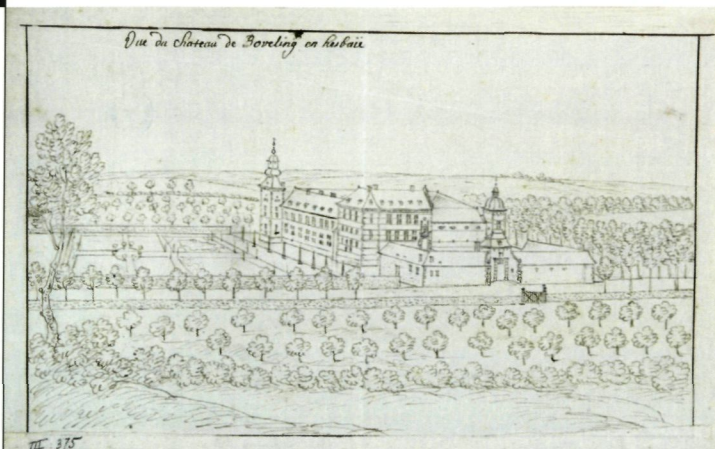 Vue du chateau de Boveling en hesbaïe
III. 375